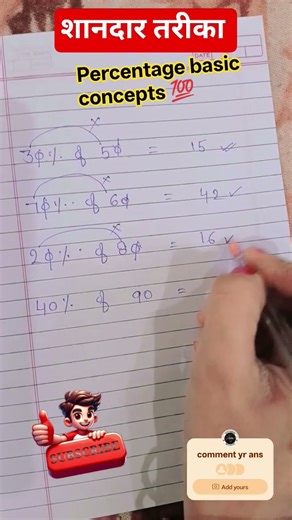 शानदार तरीका
Percentage basic
concepts 💯
30% of 50 = 15 ✓
70% of 60 = 42 ✓
20% of 80 = 16 ✓
40% of 90 =
SUBSCRIBE
comment yr ans
Add yours